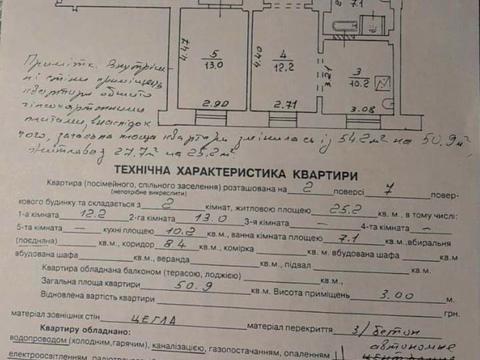 7.1
5
13.0
4
12.2
3
10.2
4.47
4.40
3.21
2.90
2.71
3.08
Примітк. Внутрішн-
ні стіни приміщень
квартири обшито
гіпсокартонними
плитами, внаслідок
чого, загальна площа квартири змінилась із 54.2м² на 50.9м²
житлова з 27.7м² на 25.2м²
ТЕХНІЧНА ХАРАКТЕРИСТИКА КВАРТИРИ
Квартира (посімейного, спільного заселення) розташована на 2 поверсі 7 повер-
(непотрібне викреслити)
хового будинку та складається з 2 кімнат, житловою площею 25.2 кв.м., в тому числі:
1-а кімната 12.2 2-га кімната 13.0 3-я кімната — кв.м. 4-та кімната —
5-та кімната — кв.м., кухні площею 10.2 кв.м., ванна кімната площею 7.1 кв.м., вбиральня
(поєднана) кв.м., коридор 8.4 кв.м., комірка кв.м. вбудована шафа
вбудована шафа кв.м., веранда кв.м., підвал кв.м.
Квартира обладнана балконом (терасою, лоджією) кв.м.
Загальна площа квартири 50.9 кв.м. Висота приміщень 3.00 м.
Відновлена вартість квартири грн.
матеріал зовнішніх стін ЦЕГЛА матеріал перекриття З/бетон
Квартиру обладнано: автономне
водопроводом (холодним, гарячим), каналізацією, газопостачанням, опаленням
електроосвітленням